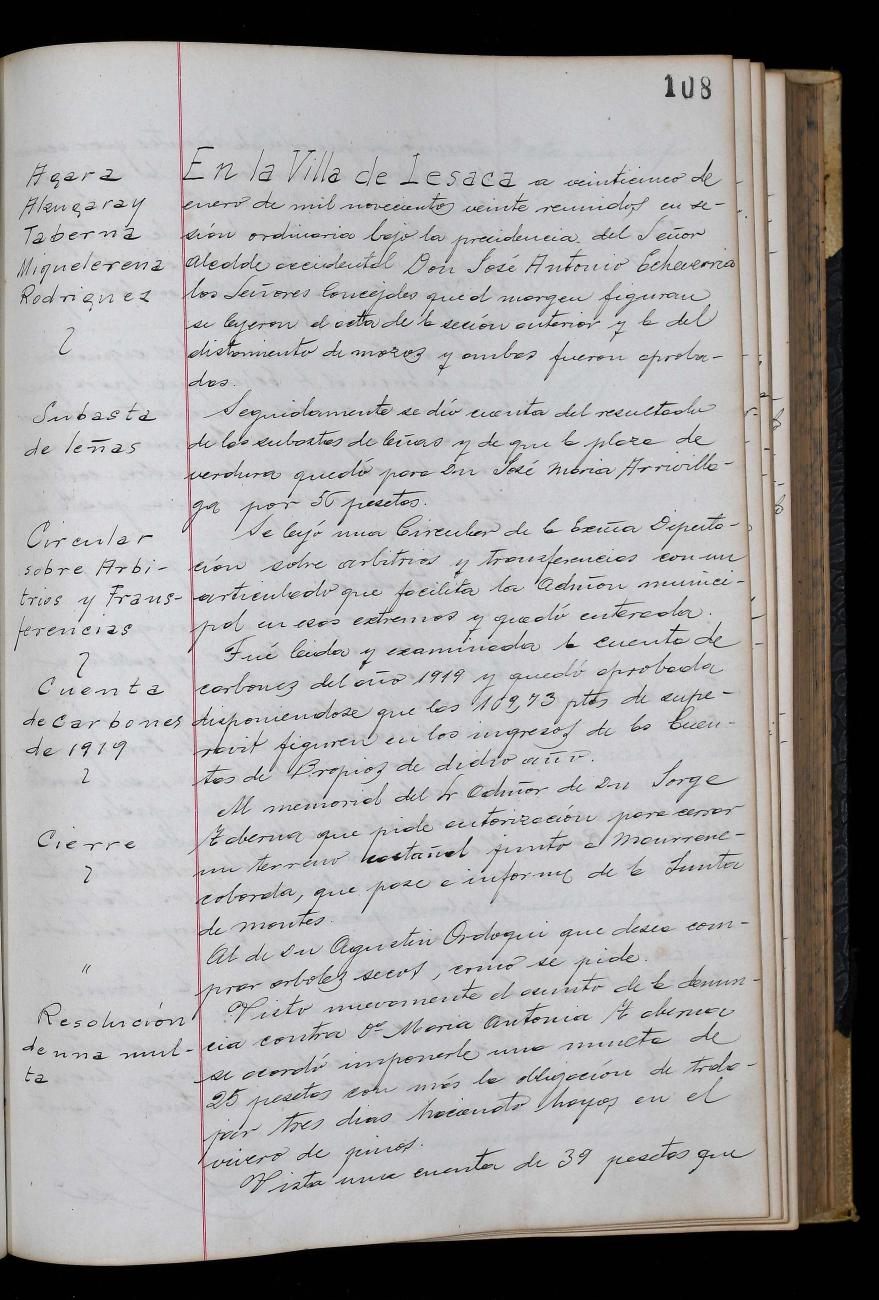 108
Agara
Alzugaray
Taberna
Miquelerena
Rodriguez
En la Villa de Lesaca a veinticinco de
enero de mil novecientos veinte reunidos en se-
sión ordinaria bajo la precidencia del Señor
Alcalde accidental Don José Antonio Echeverria
los Señores Concejales que al margen figuran
se leyeron el acta de la seción anterior y la del
alistamiento de mozos y ambas fueron aproba-
das.
Subasta
de leñas
Seguidamente se dió cuenta del resultado
de las subastas de leñas y de que la plaza de
verdura quedó para Dn José Maria Arrivilla-
ga por 56 pesetas.
Circular
sobre Arbi-
trios y Trans-
ferencias
Se leyó una Circular de la Excma Diputa-
ción sobre arbitrios y transferencias con un
articulado que facilita la Admon munici-
pal en esos extremos y quedó enterada.
Cuenta
de carbones
de 1919
Fué leida y examinada la cuenta de
carbones del año 1919 y quedó aprobada
disponiendose que las 109,73 ptas de supe-
ravit figuren en los ingresos de las Cuen-
tas de Propios de dicho año.
Cierre
Al memorial del Sr Admor de Dn Jorge
Taberna que pide autorización para cerrar
un terreno castañal junto a Maurrene-
coborda, que pase a informe de la Junta
de montes.
"
Al de Dn Agustin Ordoqui que desea com-
prar arboles secos, como se pide.
Resolución
de una mul-
ta
Visto nuevamente el asunto de la denun-
cia contra Da Maria Antonia Taberna
se acordó imponerle una multa de
25 pesetas con más la obligación de traba-
jar tres dias haciendo hoyos en el
vivero de pinos.
Vista una cuenta de 39 pesetas que